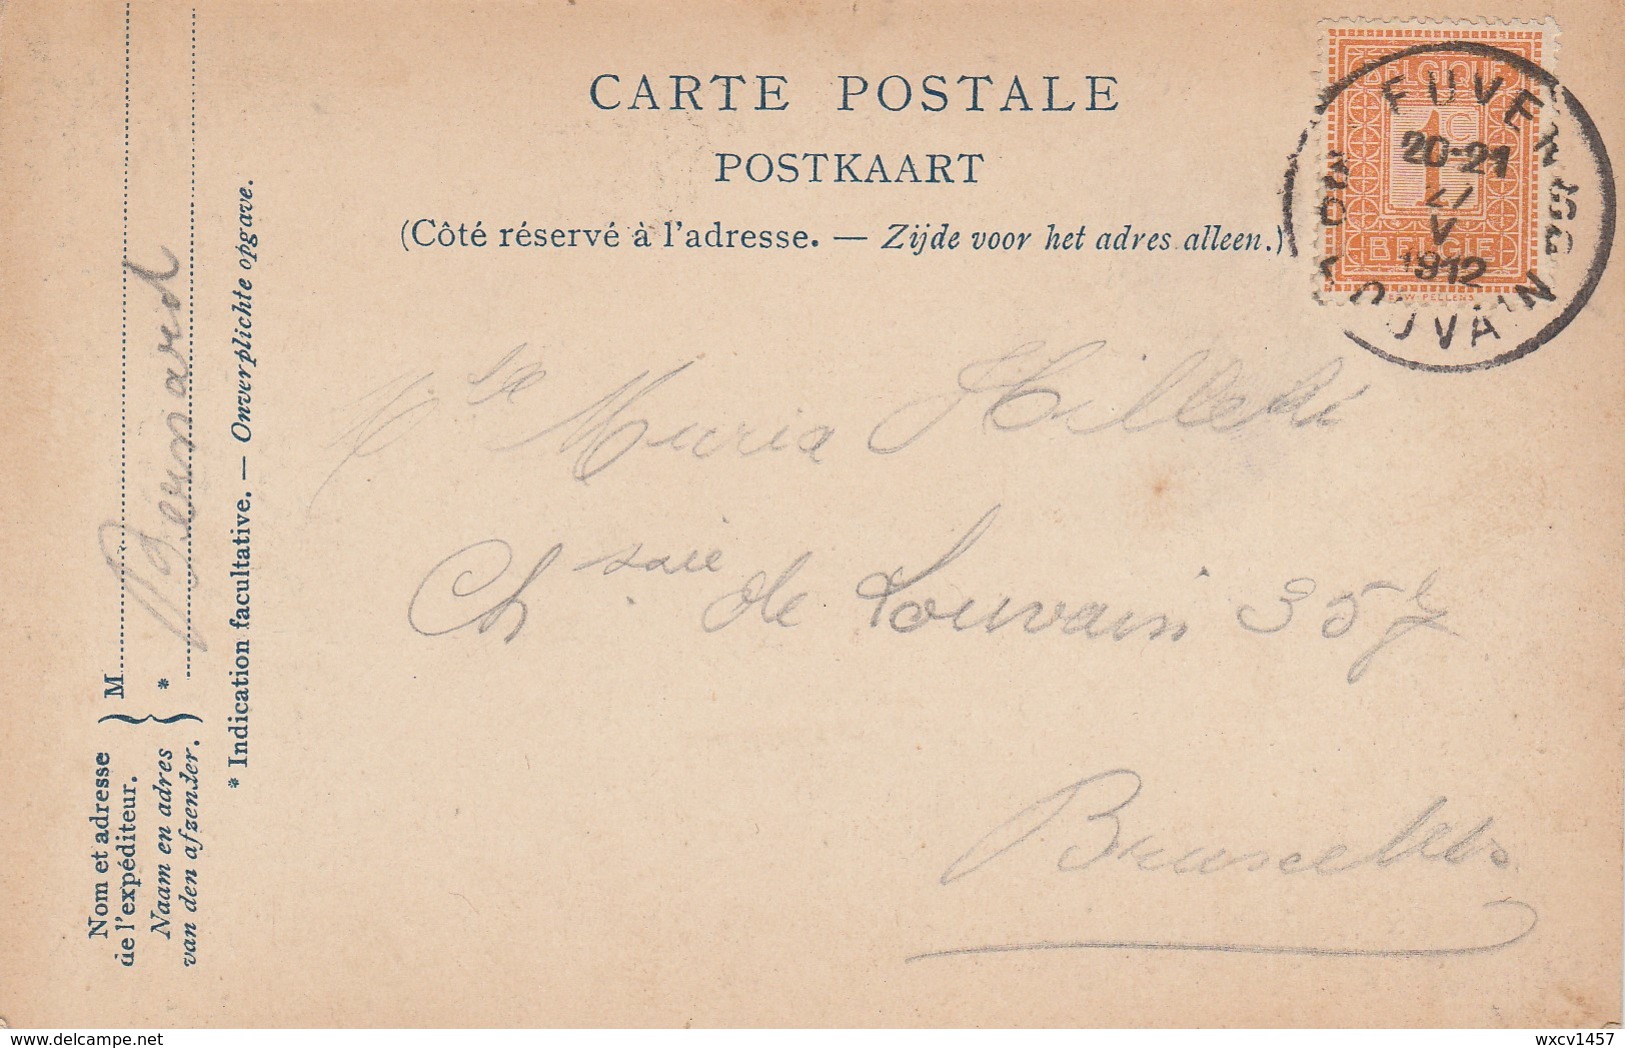 CARTE POSTALE
POSTKAART
(Côté réservé à l'adresse. — Zijde voor het adres alleen.)
BELGIQUE
1c
BELGIE
PELLENS
20-21
V
1912
Maria
Ch saie de Louvain 357
Bruxelles
Nom et adresse
de l'expéditeur.
Naam en adres
van den afzender.
M
*
Bernard
* Indication facultative. — Onverplichte opgave.
delcampe.net
wxcv1457